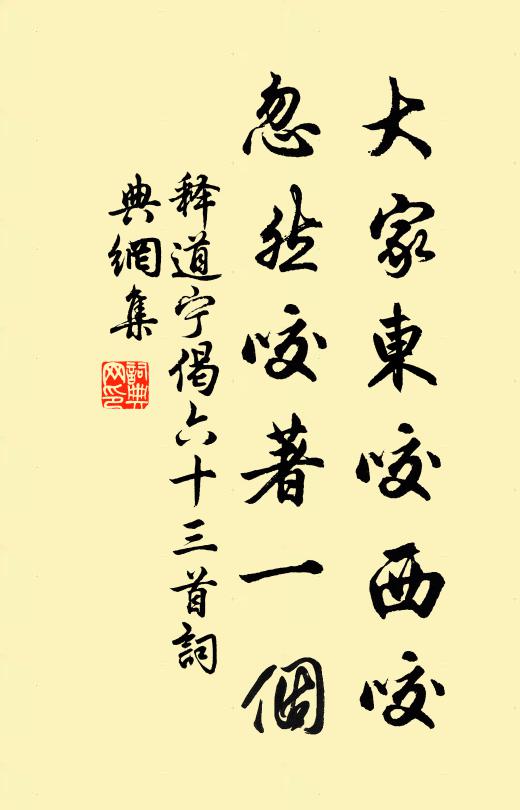 大家東咬西咬
忽然咬著一個
释道宁偈六十三首詞
典網集
詞典
网印